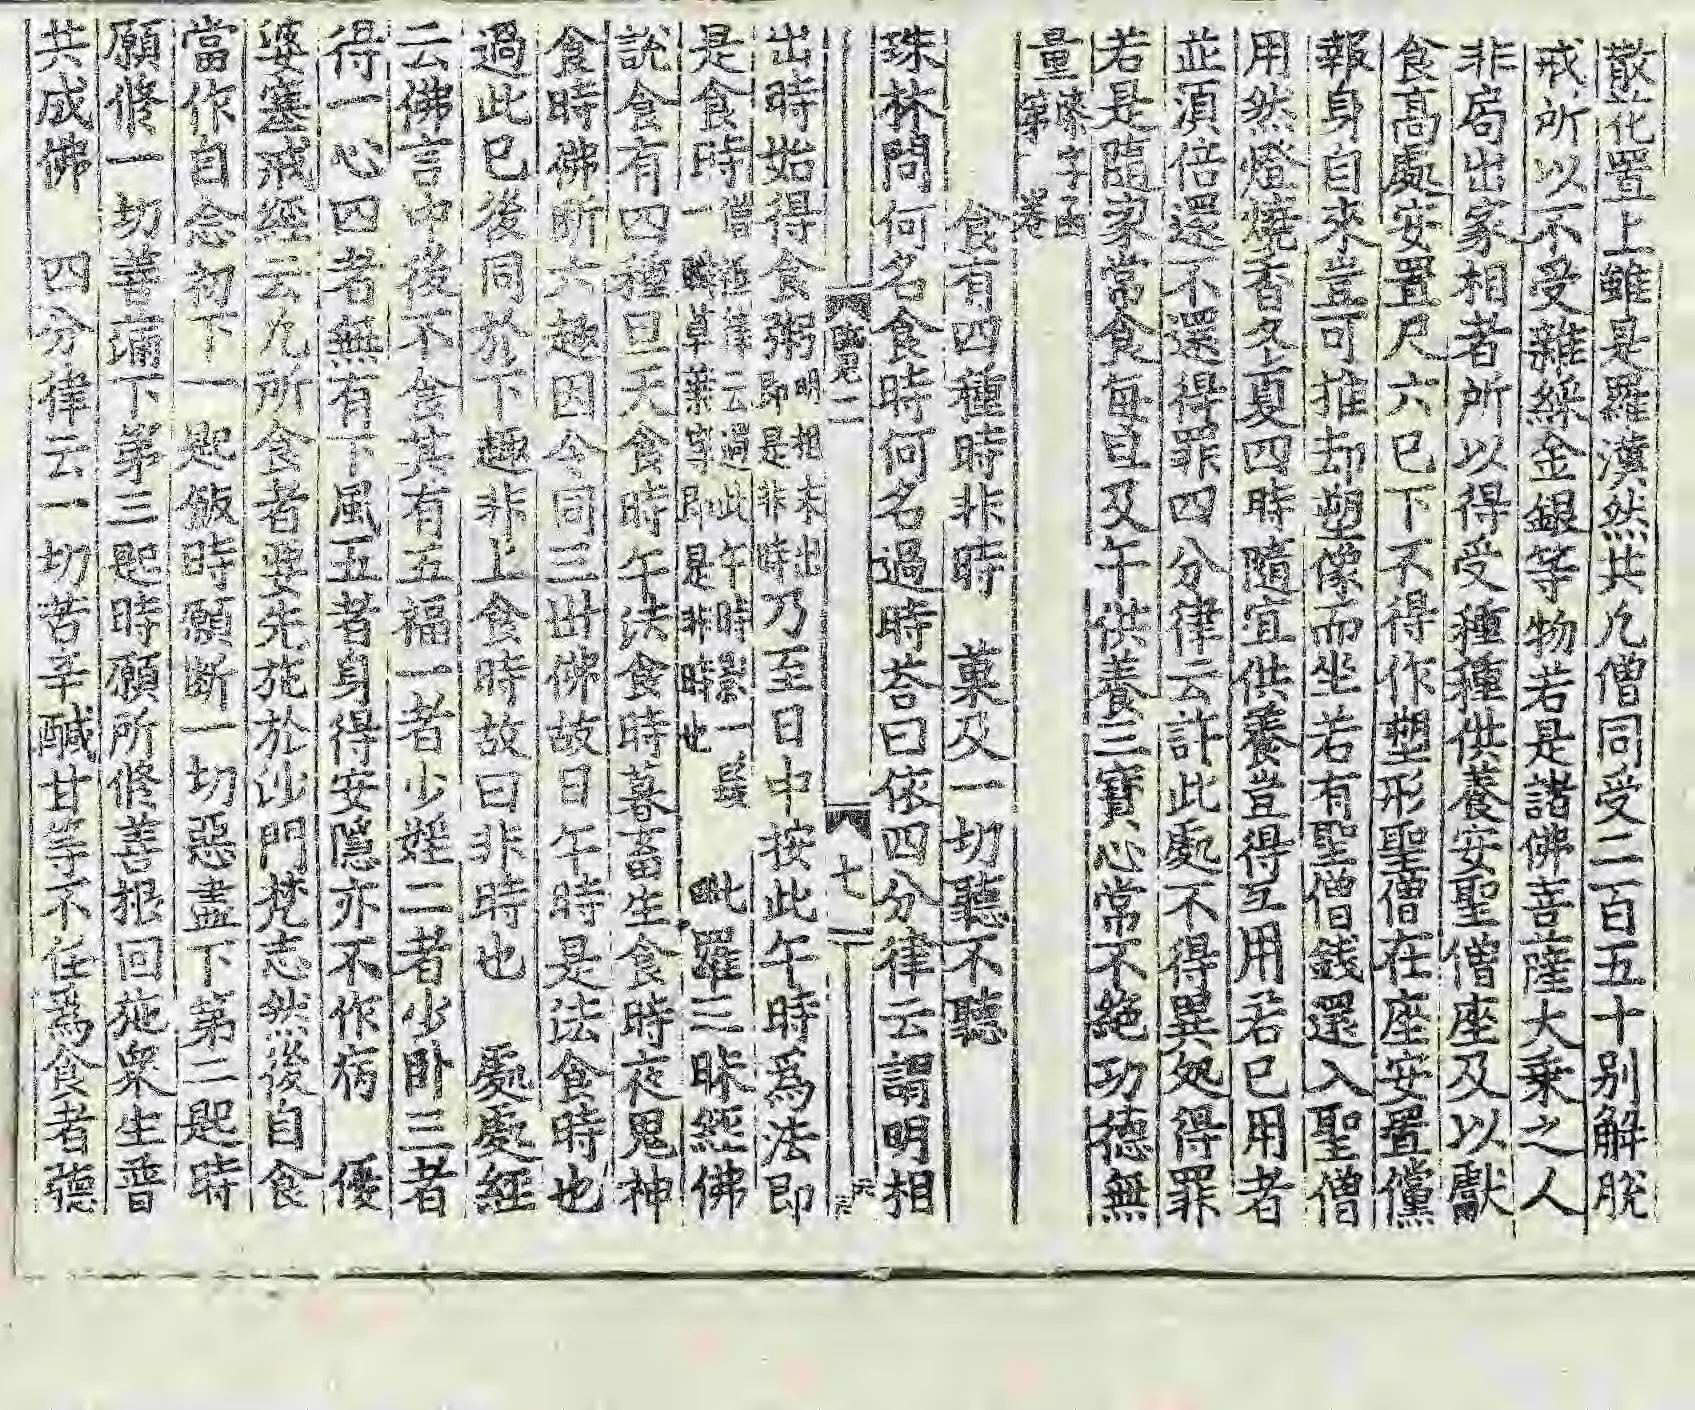 散花置上雖是羅漢然共凢僧同受二百五十别解脫
戒所以不受雜綵金銀等物若是諸佛菩薩大乘之人
非局出家相者所以得受種種供養安聖僧座及以獻
食高處安置尺六已下不得作塑形聖僧在座安置儻
報身自來豈可推却塑像而坐若有聖僧錢還入聖僧
用然燈燒香冬夏四時隨宜供養豈得互用若已用者
並湏倍還不還得罪四分律云許此處不得異処得罪
若是隨家常食每旦及午供養三寶心常不絶功德無
量
食有四種時非時 菓及一切聽不聽
珠林問何名食時何名過時荅曰依四分律云謂明相
七
出時始得食粥明相未出即是非時乃至日中按此午時爲法即
是食時僧祇律云過此午時影一髮一瞬草葉等即是非時也 毗羅三昧經佛
說食有四種旦天食時午法食時暮畜生食時夜鬼神
食時佛斷六趣因今同三世佛故日午時是法食時也
過此已後同於下趣非上食時故曰非時也 處處經
云佛言中後不食其有五福一者少婬二者少卧三者
得一心四者無有下風五者身得安隱亦不作病 優
婆塞戒經云凢所食者要先施於沙門梵志然後自食
當作自念初下一匙飯時願断一切惡盡下第二匙時
願修一切善滿下第三匙時願所修善根回施衆生普
共成佛 四分律云一切苦辛醎甘等不任爲食者聽